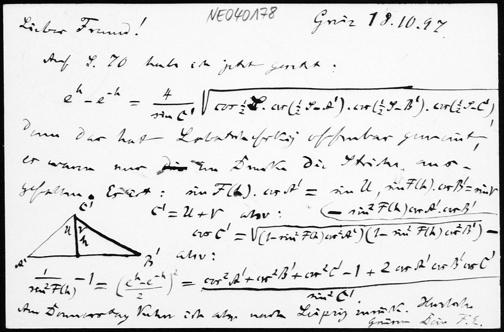 NE040178
Lieber Freund! Graz 18.10.97.
Auf S. 70 habe ich jetzt gesetzt:
e^h − e^−h = 4/sin C' √(cos ½S. cos(½S−A'). cos(½S−B'). cos(½S−C')
Denn das hat Lobatschefskij offenbar gemeint,
es waren nur im Drucke die Striche aus-
gefallen. Es ist: sin F(h). cos A' = sin U, sin F(h). cos B' = sin V
C' = U + V also: 
cos C' = √(1−sin² F(h) cos² A')(1−sin² F(h) cos² B') − (− sin² F(h) cos A' cos B'
C' U V h A' B' also:
1/sin² F(h) − 1 = (e^h − e^−h / 2)² = cos² A' + cos² B' + cos² C' − 1 + 2 cos A' cos B' cos C' / sin² C'.
Am Donnerstag kehre ich also nach Leipzig zurück. Herzliche
Grüsse Dein F. E.